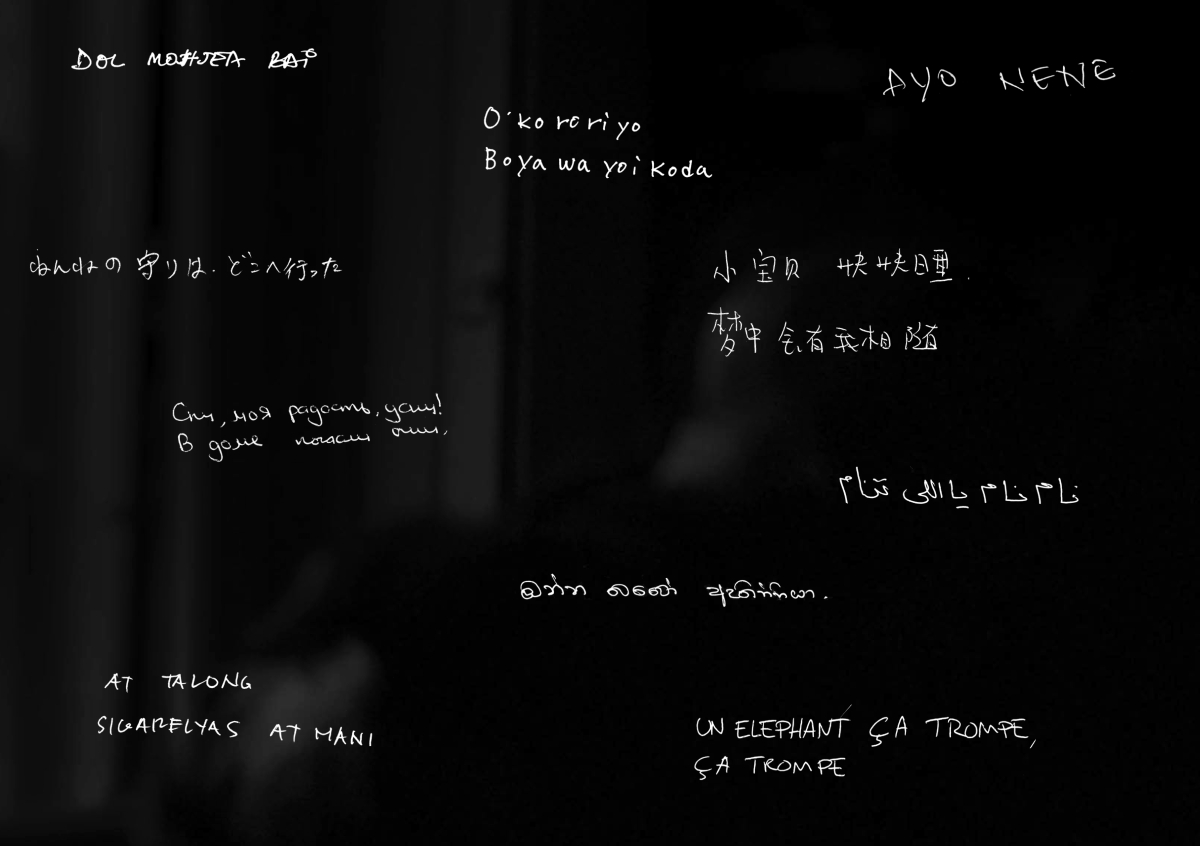 AYO NENE
O'ko ro ri yo
Boya wa yoi koda
ねんねの守りは. どこへ行った
小宝贝 快快睡.
梦中会有我相随
Спи, моя радость, усни!
В доме погасли огни,
نام نام يااللى تنام
ඔන්න බබෝ ඇතින්නියා.
AT TALONG
SIGARELYAS AT MANI
UN ELEPHANT ÇA TROMPE,
ÇA TROMPE